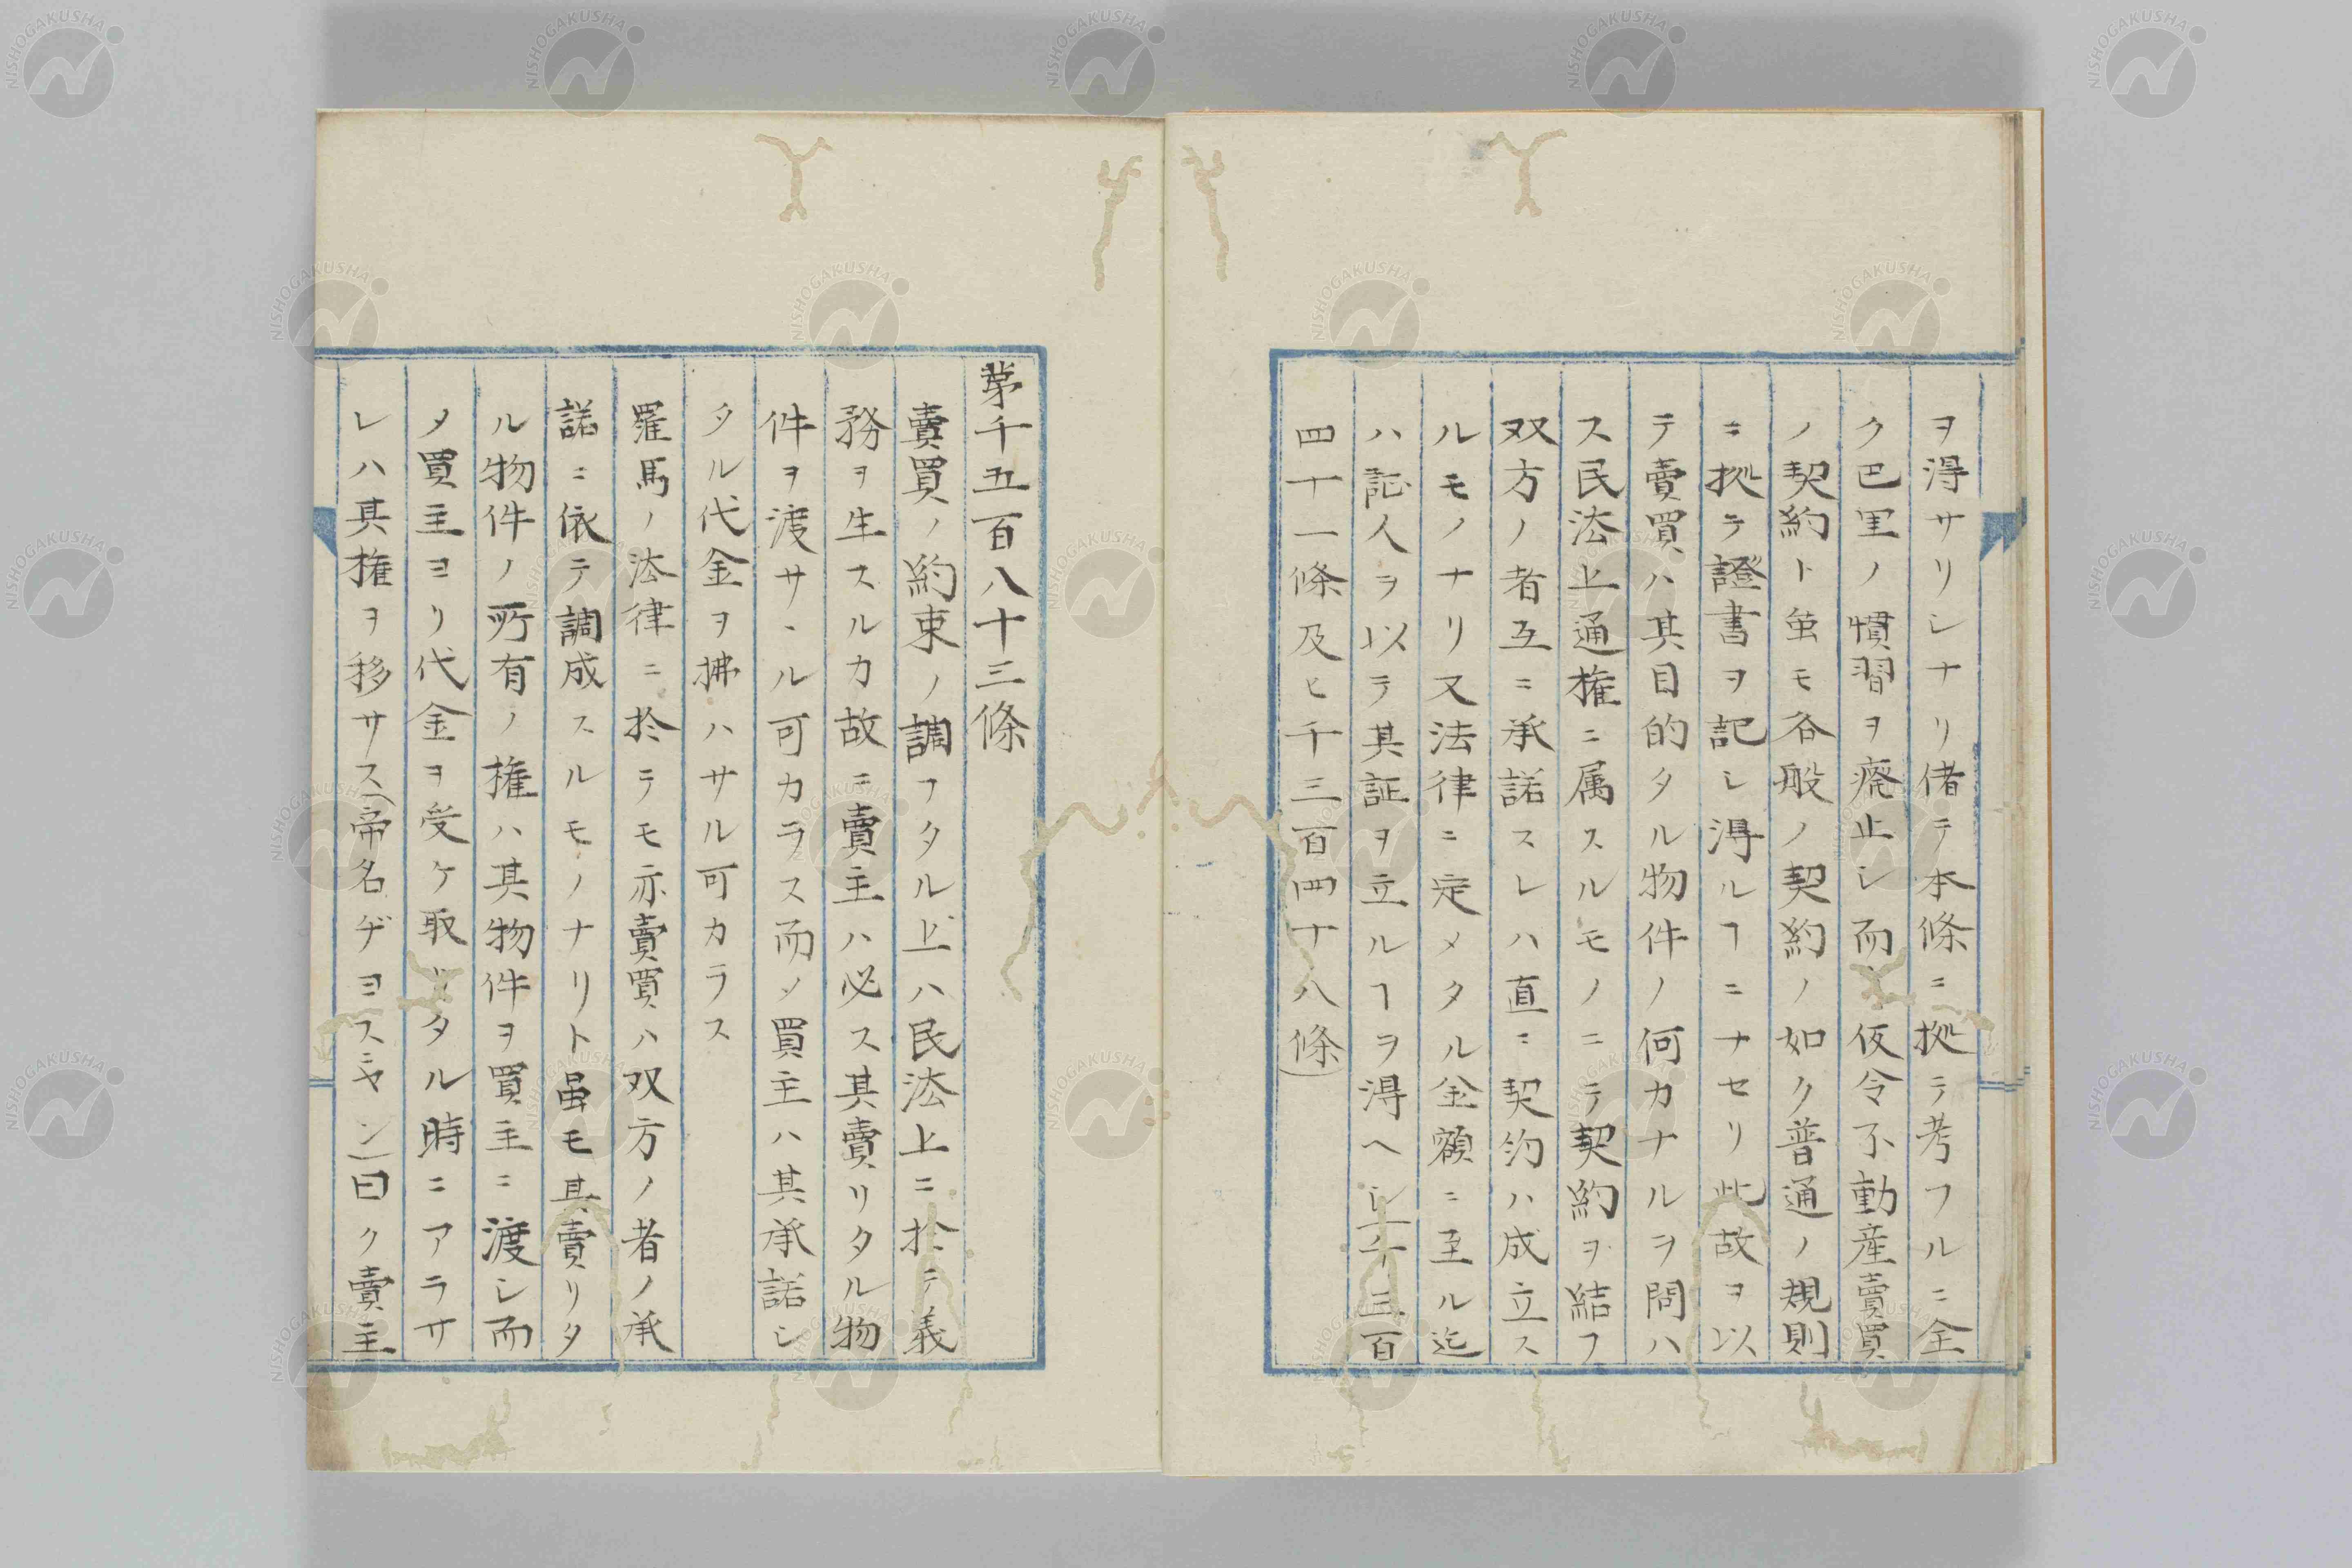 ヲ得サリシナリ偖テ本條ニ拠テ考フルニ全
ク巴里ノ慣習ヲ癈止シ而〆仮令不動産賣買
ノ契約ト虽モ各般ノ契約ノ如ク普通ノ規則
ニ拠テ證書ヲ記シ得ルヿニナセリ此故ヲ以
テ賣買ハ其目的タル物件ノ何カナルヲ問ハ
ス民法上通權ニ属スルモノニテ契約ヲ結フ
双方ノ者互ニ承諾スレハ直ニ契約ハ成立ス
ルモノナリ又法律ニ定メタル金額ニ至ル迄
ハ証人ヲ以テ其証ヲ立ルヿヲ得ヘシ(千三百
四十一條及ヒ千三百四十八條)
苐千五百八十三條
賣買ノ約束ノ調フタル上ハ民法上ニ於テ義
務ヲ生スルカ故ニ賣主ハ必ス其賣リタル物
件ヲ渡サヽル可カラス而〆買主ハ其承諾シ
タル代金ヲ拂ハサル可カラス
羅馬ノ法律ニ於テモ亦賣買ハ双方ノ者ノ承
諾ニ依テ調成スルモノナリト虽モ其賣リタ
ル物件ノ所有ノ權ハ其物件ヲ買主ニ渡シ而
〆買主ヨリ代金ヲ受ケ取リタル時ニアラサ
レハ其權ヲ移サス(帝名ヂヨスニヤン)曰ク賣主
NISHOGAKUSHA